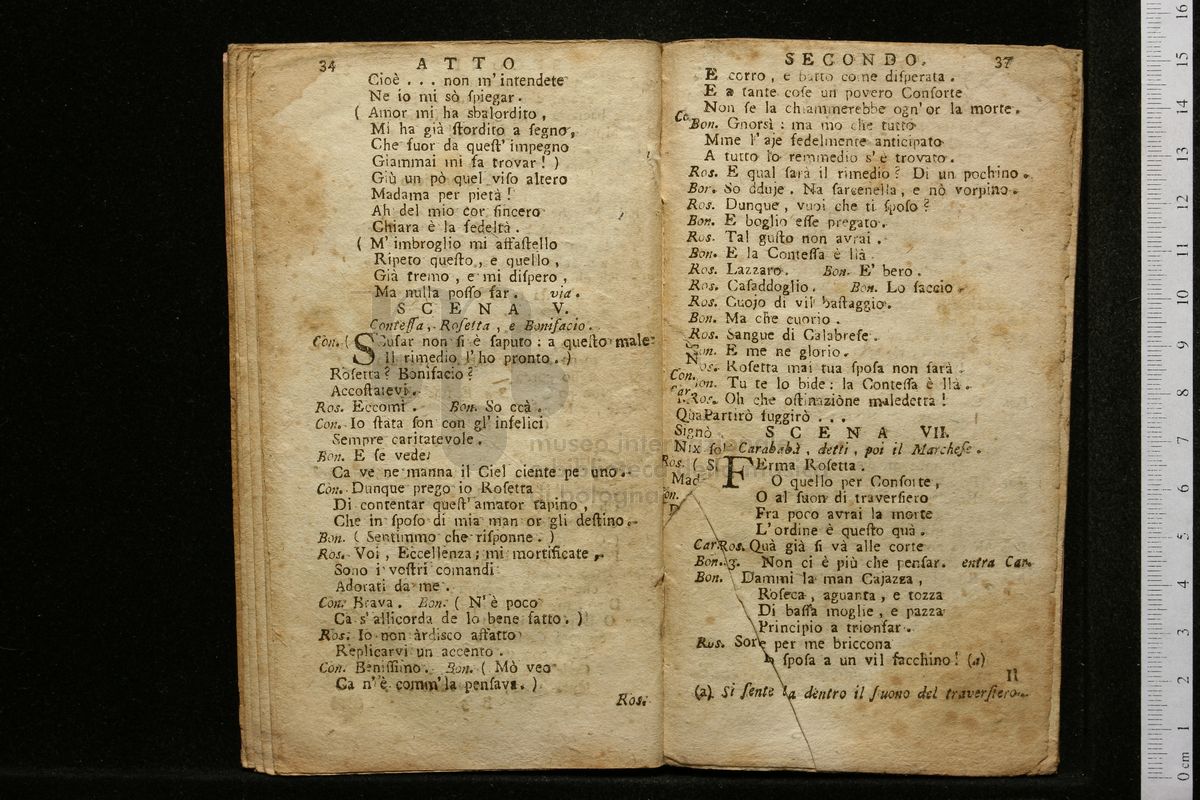 34 ATTO
Cioè . . . non m'intendete
Ne io mi sò ſpiegar.
( Amor mi ha sbalordito ,
Mi ha già ſtordito a ſegno,
Che fuor da queſt' impegno
Giammai mi ſa trovar ! )
Giù un pò quel viſo altero
Madama per pietà !
Ah del mio cor ſincero
Chiara è la fedeltà .
( M' imbroglio mi affaſtello
Ripeto queſto , e quello ,
Già tremo , e mi diſpero ,
Ma nulla poſſo far . via .
SCENA V.
Conteſſa, Roſetta , e Bonifacio .
Con. ( Scuſar non ſi è ſaputo : a queſto male
Il rimedio l' ho pronto . )
Roſetta ? Bonifacio ?
Accoſtatevi .
Ros. Eccomi . Bon. So ccà .
Con. Io ſtata ſon con gl' infelici
Sempre caritatevole .
Bon. E ſe vede;
Ca ve ne manna il Ciel ciente pe uno .
Còn. Dunque prego io Roſetta
Di contentar queſt' amator tapino ,
Che in ſpoſo di mia man or gli deſtino .
Bon. ( Sentimmo che riſponne . )
Ros. Voi , Eccellenza ; mi mortificate ,
Sono i voſtri comandi
Adorati da me .
Con. Brava . Bon. ( N' è poco
Ca s' allicorda de lo bene fatto . )
Ros. Io non àrdisco affatto
Replicarvi un accento .
Con. Beniſſimo . Bon. ( Mò veo
Ca n' è comm' la penſava . )
Ros.
SECONDO. 37
E corro , e batto come diſperata .
E a tante coſe un povero Conſorte
Non ſe la chiammerebbe ogn' or la morte .
Co.
Bon. Gnorsì : ma mo che tutto
Mme l' aje fedelmente anticipato
A tutto lo remmedio s' è trovato .
Ros. E qual ſarà il rimedio ? Di un pochino .
Bon. So dduje . Na farcenella , e nò vorpino .
Ros. Dunque , vuoi che ti ſpoſo ?
Bon. E boglio eſſe pregato .
Ros. Tal guſto non avrai .
Bon. E la Conteſſa è llà .
Ros. Lazzaro . Bon. E' bero .
Ros. Caſaddoglio . Bon. Lo ſaccio .
Ros. Cuojo di vil baſtaggio .
Bon. Ma che cuorio .
Ros. Sangue di Calabreſe .
Bon. E me ne glorio .
N
Ros. Roſetta mai tua ſpoſa non ſarà .
Con.
Bon. Tu te lo bide : la Conteſſa è llà .
Car
Ros. Oh che oſtinaziòne maledetta !
Qua Partirò fuggirò . . .
Signò SCENA VII.
Nix ſol Carababà , detti , poi il Marcheſe .
Ros. ( S FErma Roſetta .
Mad O quello per Conſorte ,
on. O al ſuon di traverſiero
Fra poco avrai la morte
L' ordine è queſto quà .
Car Ros. Quà già ſi và alle corte
Bon. 3. Non ci è più che penſar . entra Car.
Bon. Dammi la man Cajazza ,
Roſeca , aguanta , e tozza
Di baſſa moglie , e pazza
Principio a trionfar .
Ros. Sorte per me briccona
ſpoſa a un vil facchino ! (a)
Il
(a) Si ſente la dentro il ſuono del traverſiero .